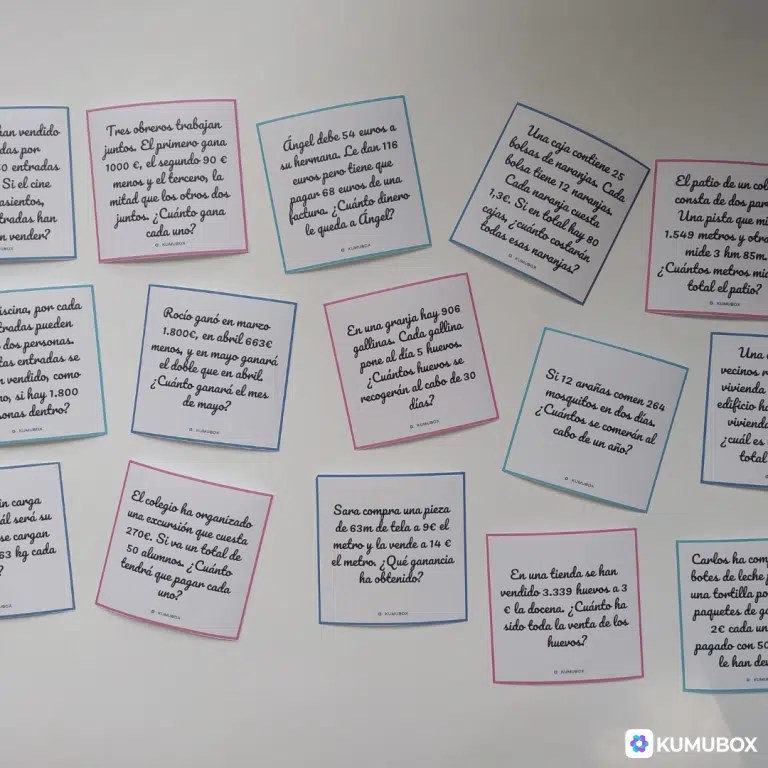 han vendido
das por
0 entradas
Si el cine
asientos,
tradas han
n vender?
KUMUBOX
Tres obreros trabajan
juntos. El primero gana
1000 €, el segundo 90 €
menos y el tercero, la
mitad que los otros dos
juntos. ¿Cuánto gana
cada uno?
KUMUBOX
Ángel debe 54 euros a
su hermana. Le dan 116
euros pero tiene que
pagar 68 euros de una
factura. ¿Cuánto dinero
le queda a Ángel?
KUMUBOX
Una caja contiene 25
bolsas de naranjas. Cada
bolsa tiene 12 naranjas.
Cada naranja cuesta
1,3€. Si en total hay 80
cajas, ¿cuánto costarán
todas esas naranjas?
KUMUBOX
El patio de un col
consta de dos par
Una pista que mi
1.549 metros y otra
mide 3 hm 85m.
¿Cuántos metros mid
total el patio?
KUMUBOX
iscina, por cada
tradas pueden
dos personas.
tas entradas se
n vendido, como
no, si hay 1.800
sonas dentro?
Rocío ganó en marzo
1.800€, en abril 663€
menos, y en mayo ganará
el doble que en abril.
¿Cuánto ganará el mes
de mayo?
KUMUBOX
En una granja hay 906
gallinas. Cada gallina
pone al día 5 huevos.
¿Cuántos huevos se
recogerán al cabo de 30
días?
KUMUBOX
Si 12 arañas comen 264
mosquitos en dos días.
¿Cuántos se comerán al
cabo de un año?
KUMUBOX
Una
vecinos
vivienda
edificio ha
viviend
¿cuál es
total
KUM
in carga
ál será su
se cargan
63 kg cada
?
El colegio ha organizado
una excursión que cuesta
270€. Si va un total de
50 alumnos. ¿Cuánto
tendrá que pagar cada
uno?
KUMUBOX
Sara compra una pieza
de 63m de tela a 9€ el
metro y la vende a 14 €
el metro. ¿Qué ganancia
ha obtenido?
KUMUBOX
En una tienda se han
vendido 3.339 huevos a 3
€ la docena. ¿Cuánto ha
sido toda la venta de los
huevos?
KUMUBOX
Carlos ha com
botes de leche
una tortilla po
paquetes de ga
2€ cada un
pagado con 50
le han dev
KUM
KUMUBOX